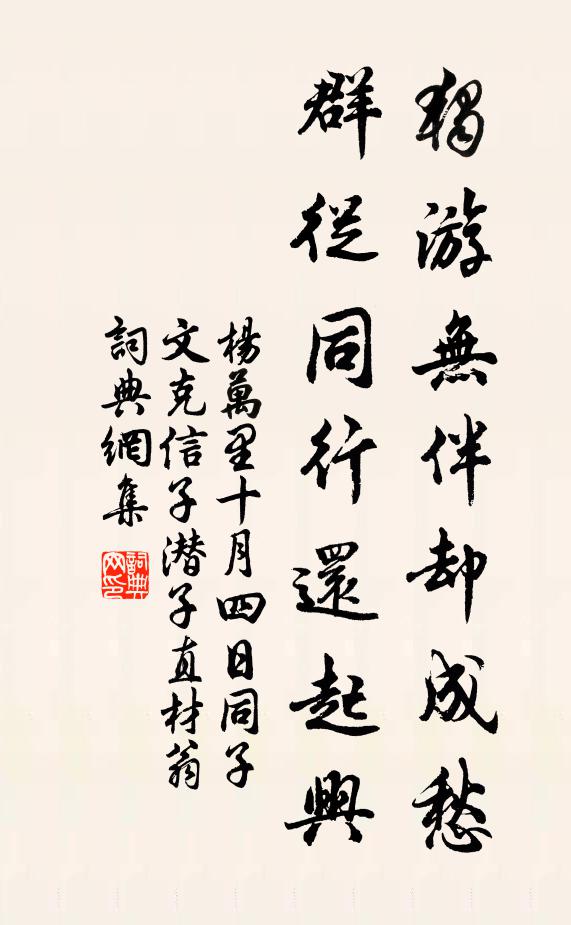 獨游無伴却成愁
群從同行還起興
楊萬里十月四日同子
文克信子潜子直材翁
詞典網集
詞典網印